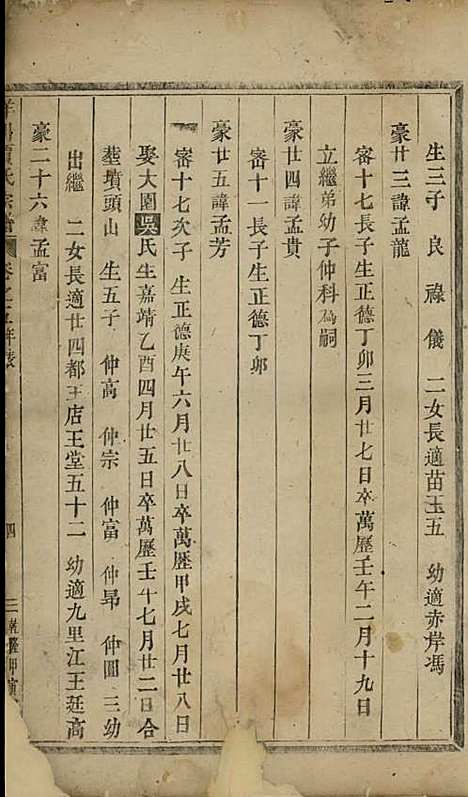 生三子 良 祿 儀 二女長適苗玉五 幼適赤岸馮
豪廿三諱孟龍
審十七長子生正德丁卯三月廿七日卒萬歷壬午二月十九日
立繼弟幼子仲科為嗣
豪廿四諱孟貴
審十一長子生正德丁卯
豪廿五諱孟芳
審十七次子 生正德庚午六月廿八日卒萬歷甲戌七月廿八日
娶大園吳氏生嘉靖乙酉四月廿五日卒萬歷壬午七月廿二日合
塟墳頭山 生五子 仲高 仲宗 仲富 仲昂 仲圓 三幼
出繼 二女長適廿四都王店王堂五十二 幼適九里江王廷高
豪二十六諱孟富
氏宗譜 四